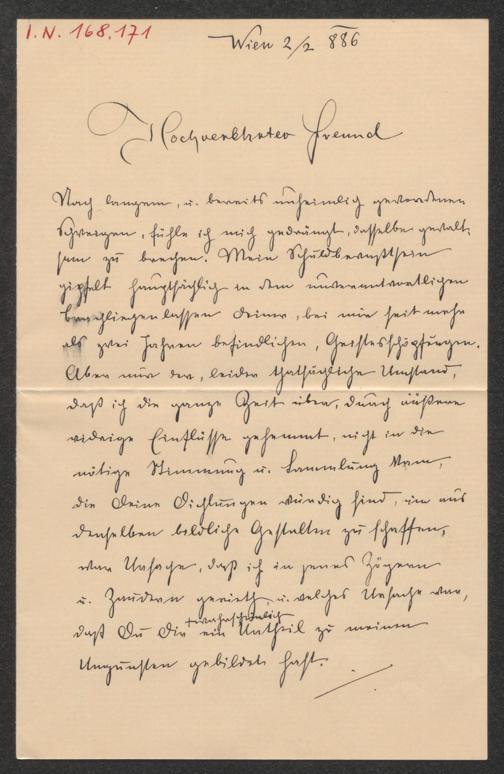 I.N. 168.171
Wien 2/2 886
Hochverehrter Freund
Nach langem, u. bereits unheimlich gewordenen
Schweigen, fühle ich mich gedrängt, dasselbe gewalt-
sam zu brechen. Mein Schuldbewußtsein
gipfelt hauptsächlich in dem unverantwortlichen
liegenlassen Deiner, bei mir seit mehr
als zwei Jahren befindlichen, Geistesschöpfungen.
Aber nur der, leider thatsächliche Umstand,
daß ich die ganze Zeit über, durch äußere
widrige Einflüsse gehemmt, nicht in die
nötige Stimmung u. Sammlung kam,
die Deine Dichtungen würdig sind, um aus
denselben bildliche Gestalten zu schaffen,
war Ursache, daß ich in jenes Zögern
u. Zaudern gerieth, u. welches Ursache war,
+ wahrscheinlich
daß Du Dir ein Urtheil zu meinen
Ungunsten gebildet hast.